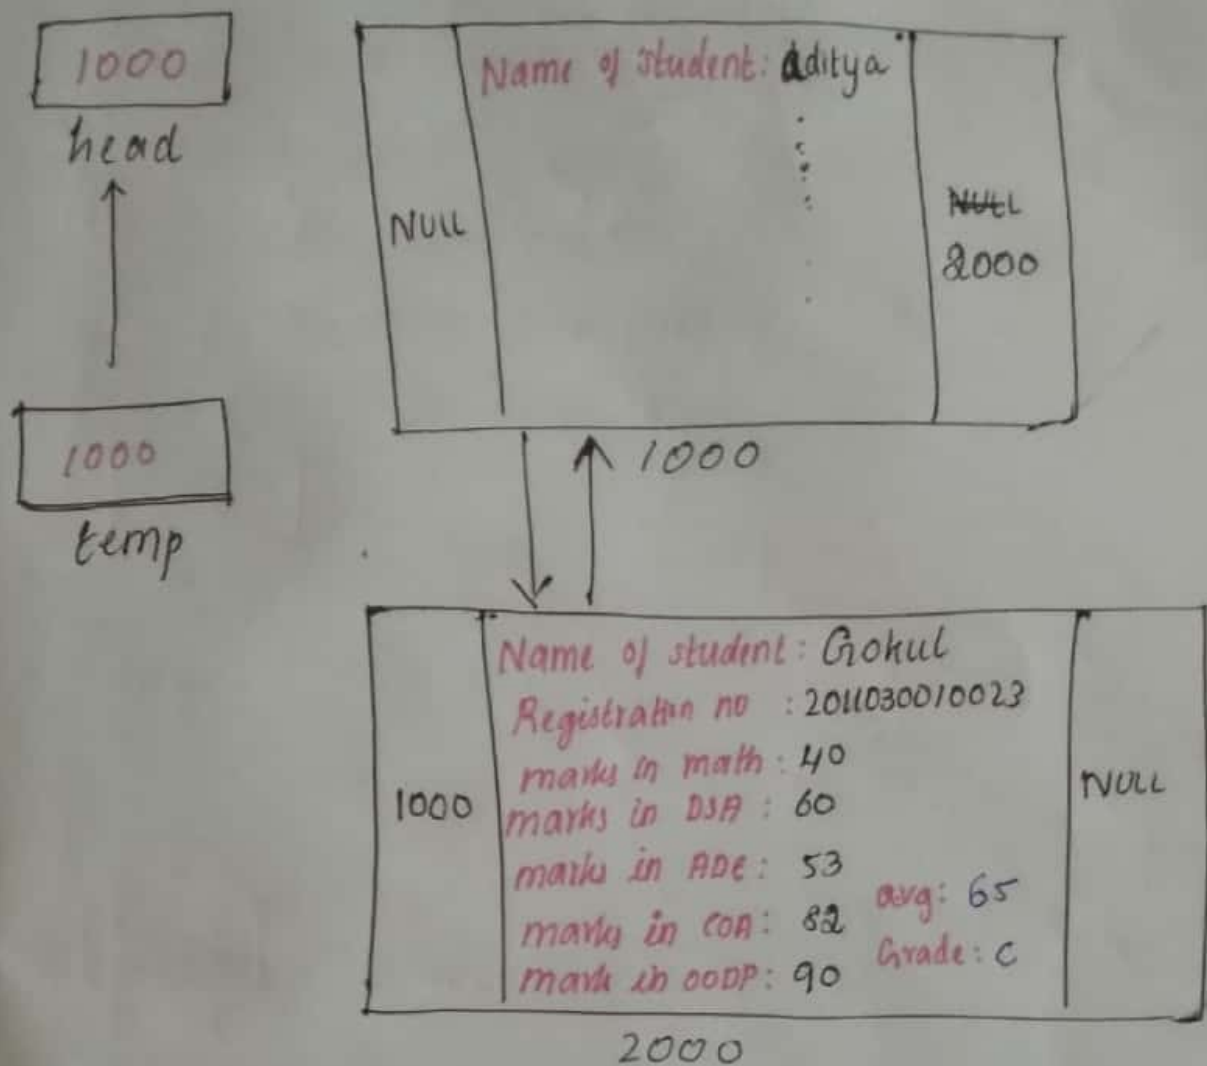 1000
head
1000
temp
Name of student: Aditya
NULL
NULL
2000
1000
Name of student: Gokul
Registration no : 2011030010023
marks in math : 40
marks in DSA : 60
marks in ADE : 53
marks in COA : 82
mark in OODP : 90
avg: 65
Grade: C
1000
NULL
2000